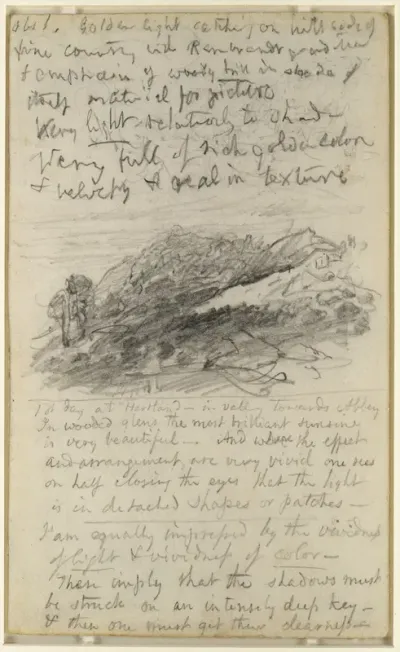 Golden light catching on hill side of
fine country in Rembrandt grand
& emphasis of woody hill in shade
itself material for picture
Very light relatively to shade
Very full of rich golden color
& velvety & real in texture
day at Hartland — in vale towards Abbey
In wooded glens the most brilliant sunshine
is very beautiful — And where the effect
and arrangement are very vivid one sees
on half closing the eyes that the light
is in detached shapes or patches —
I am equally impressed by the vividness
of light & vividness of color —
These imply that the shadows must
be struck on an intensely deep key —
& then one must get there clearness —